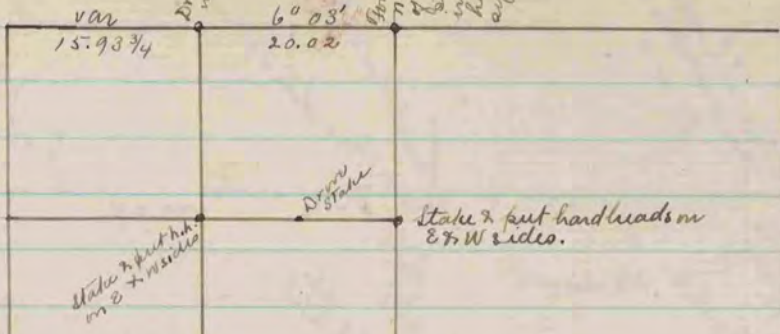 var
15.93 3/4
6° 03'
20.02
Drove
Stake
Stake & put hardheads on
E & W sides.
Stake & put h.h.
on E & W sides